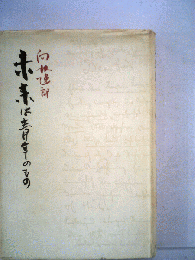 向坂逸郎
未来は青年のもの